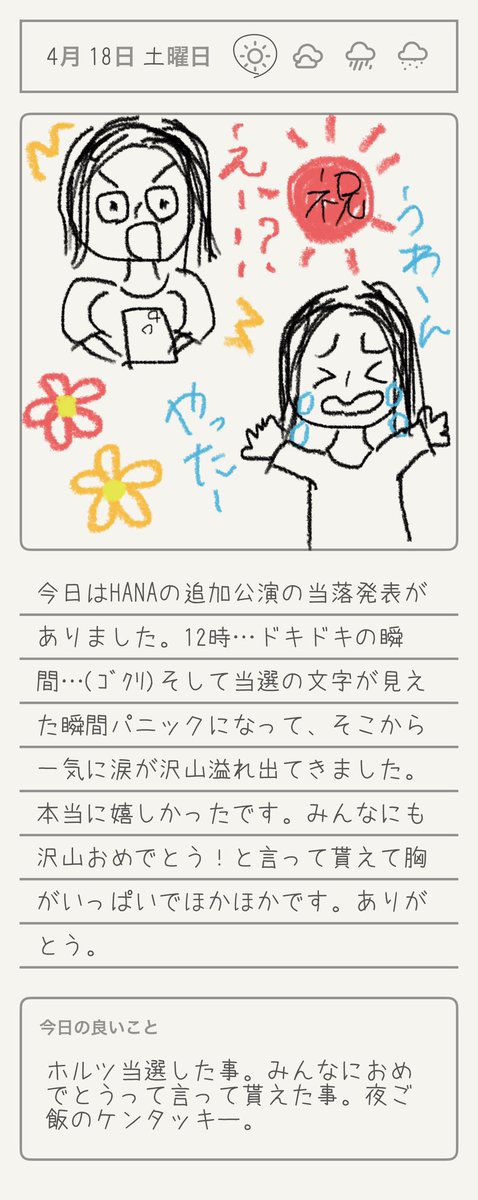 4月 18日 土曜日
えー!?
祝
うわーん
やったー
今日はHANAの追加公演の当落発表が
ありました。12時…ドキドキの瞬
間…(ｺﾞｸﾘ)そして当選の文字が見え
た瞬間パニックになって、そこから
一気に涙が沢山溢れ出てきました。
本当に嬉しかったです。みんなにも
沢山おめでとう！と言って貰えて胸
がいっぱいでほかほかです。ありが
とう。
今日の良いこと
ホルツ当選した事。みんなにおめ
でとうって言って貰えた事。夜ご
飯のケンタッキー。